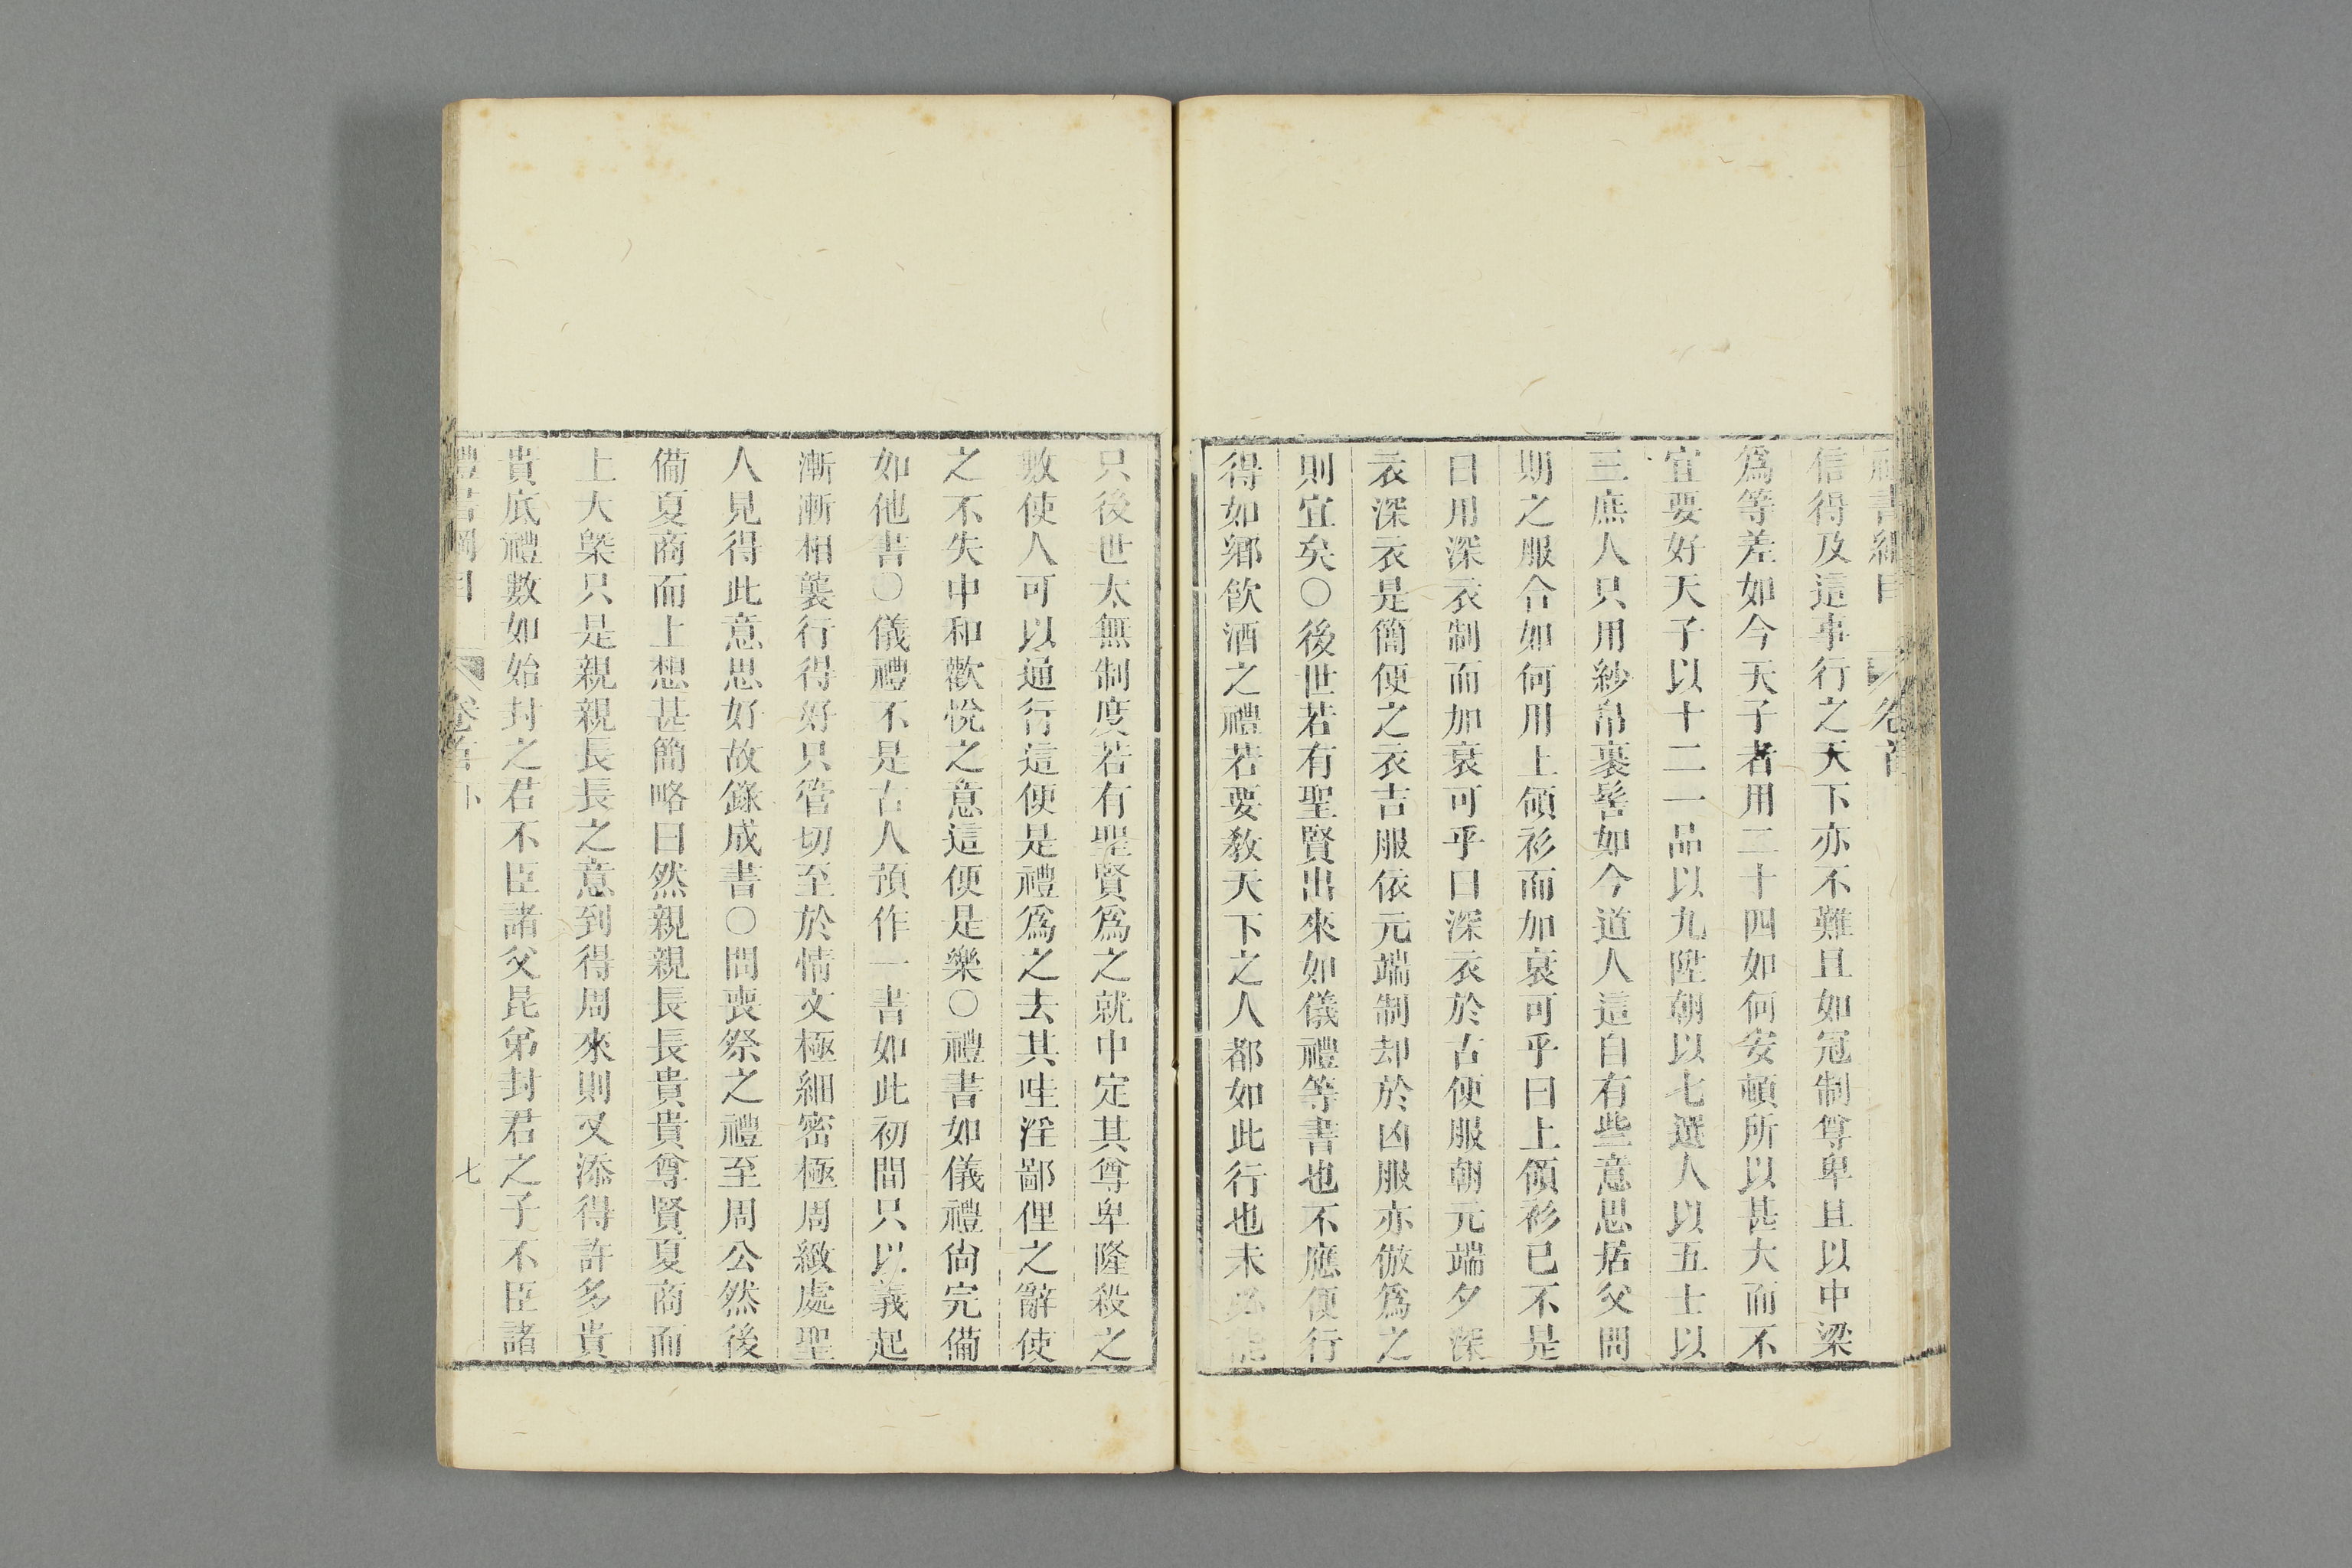 禮書綱目 卷首
信得及這事行之天下亦不難且如冠制尊卑且以中梁
爲等差如今天子者用二十四如何安頓所以甚大而不
宜要好天子以十二一品以九陞朝以七選人以五士以
三庶人只用紗帛裹髻如今道人這自有些意思居父問
期之服合如何用上領衫而加衰可乎曰上領衫已不是
曰用深衣制而加衰可乎曰深衣於古便服朝元端夕深
衣深衣是簡便之衣吉服依元端制却於凶服亦倣爲之
則宜矣○後世若有聖賢出來如儀禮等書也不應便行
得如鄉飮酒之禮若要敎天下之人都如此行也未必能
只後世太無制度若有聖賢爲之就中定其尊卑隆殺之
數使人可以通行這便是禮爲之去其哇淫鄙俚之辭使
之不失中和歡悅之意這便是樂○禮書如儀禮尙完備
如他書○儀禮不是古人預作一書如此初間只以義起
漸漸相襲行得好只管切至於情文極細密極周緻處聖
人見得此意思好故錄成書○問喪祭之禮至周公然後
備夏商而上想甚簡略曰然親親長長貴貴尊賢夏商而
上大槩只是親親長長之意到得周來則又添得許多貴
貴底禮數如始封之君不臣諸父昆弟封君之子不臣諸
禮書綱目 卷首 七